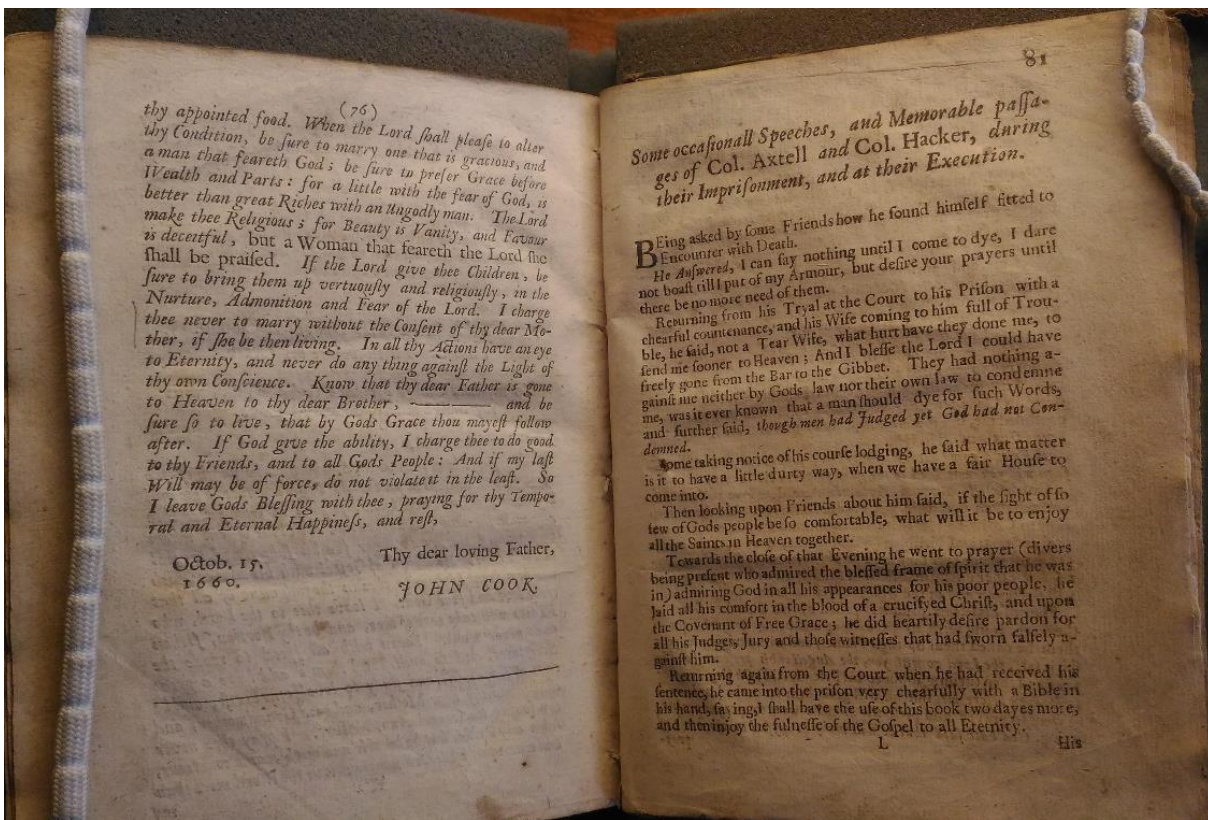 (76)
thy appointed food. When the Lord ſhall pleaſe to alter
thy Condition, be ſure to marry one that is gracious, and
a man that feareth God; be ſure to prefer Grace before
Wealth and Parts: for a little with the fear of God, is
better than great Riches with an Ungodly man. The Lord
make thee Religious; for Beauty is Vanity, and Favour
is deceitful, but a Woman that feareth the Lord ſhe
ſhall be praiſed. If the Lord give thee Children, be
ſure to bring them up vertuouſly and religiouſly, in the
Nurture, Admonition and Fear of the Lord. I charge
thee never to marry without the Conſent of thy dear Mo-
ther, if ſhe be then living. In all thy Actions have an eye
to Eternity, and never do any thing againſt the Light of
thy own Conſcience. Know that thy dear Father is gone
to Heaven to thy dear Brother, —— —— and be
ſure ſo to live, that by Gods Grace thou mayeſt follow
after. If God give the ability, I charge thee to do good
to thy Friends, and to all Gods People: And if my laſt
Will may be of force, do not violate it in the leaſt. So
I leave Gods Bleſſing with thee, praying for thy Tempo-
ral and Eternal Happineſs, and reſt,
Thy dear loving Father,
Octob. 15.
1660.
JOHN COOK.
81
Some occaſionall Speeches, and Memorable paſſa-
ges of Col. Axtell and Col. Hacker, during
their Impriſonment, and at their Execution.
BEing asked by ſome Friends how he found himſelf fitted to
Encounter with Death.
He Anſwered, I can ſay nothing until I come to dye, I dare
not boaſt till I put of my Armour, but deſire your prayers until
there be no more need of them.
Returning from his Tryal at the Court to his Priſon with a
chearful countenance, and his Wife coming to him full of Trou-
ble, he ſaid, not a Tear Wife, what hurt have they done me, to
ſend me ſooner to Heaven; And I bleſſe the Lord I could have
freely gone from the Bar to the Gibbet. They had nothing a-
gainſt me neither by Gods law nor their own law to condemne
me, was it ever known that a man ſhould dye for ſuch Words,
and further ſaid, though men had Judged yet God had not Con-
demned.
Some taking notice of his courſe lodging, he ſaid what matter
is it to have a little durty way, when we have a fair Houſe to
come into.
Then looking upon Friends about him ſaid, if the ſight of ſo
few of Gods people be ſo comfortable, what will it be to enjoy
all the Saints in Heaven together.
Towards the cloſe of that Evening he went to prayer (divers
being preſent who admired the bleſſed frame of ſpirit that he was
in) admiring God in all his appearances for his poor people, he
laid all his comfort in the blood of a crucifyed Chriſt, and upon
the Covenant of Free Grace; he did heartily deſire pardon for
all his Judges, Jury and thoſe witneſſes that had ſworn falſely a-
gainſt him.
Returning again from the Court when he had received his
ſentence, he came into the priſon very chearfully with a Bible in
his hand, ſaying, I ſhall have the uſe of this book two dayes more,
and then injoy the fulneſſe of the Goſpel to all Eternity.
L
His